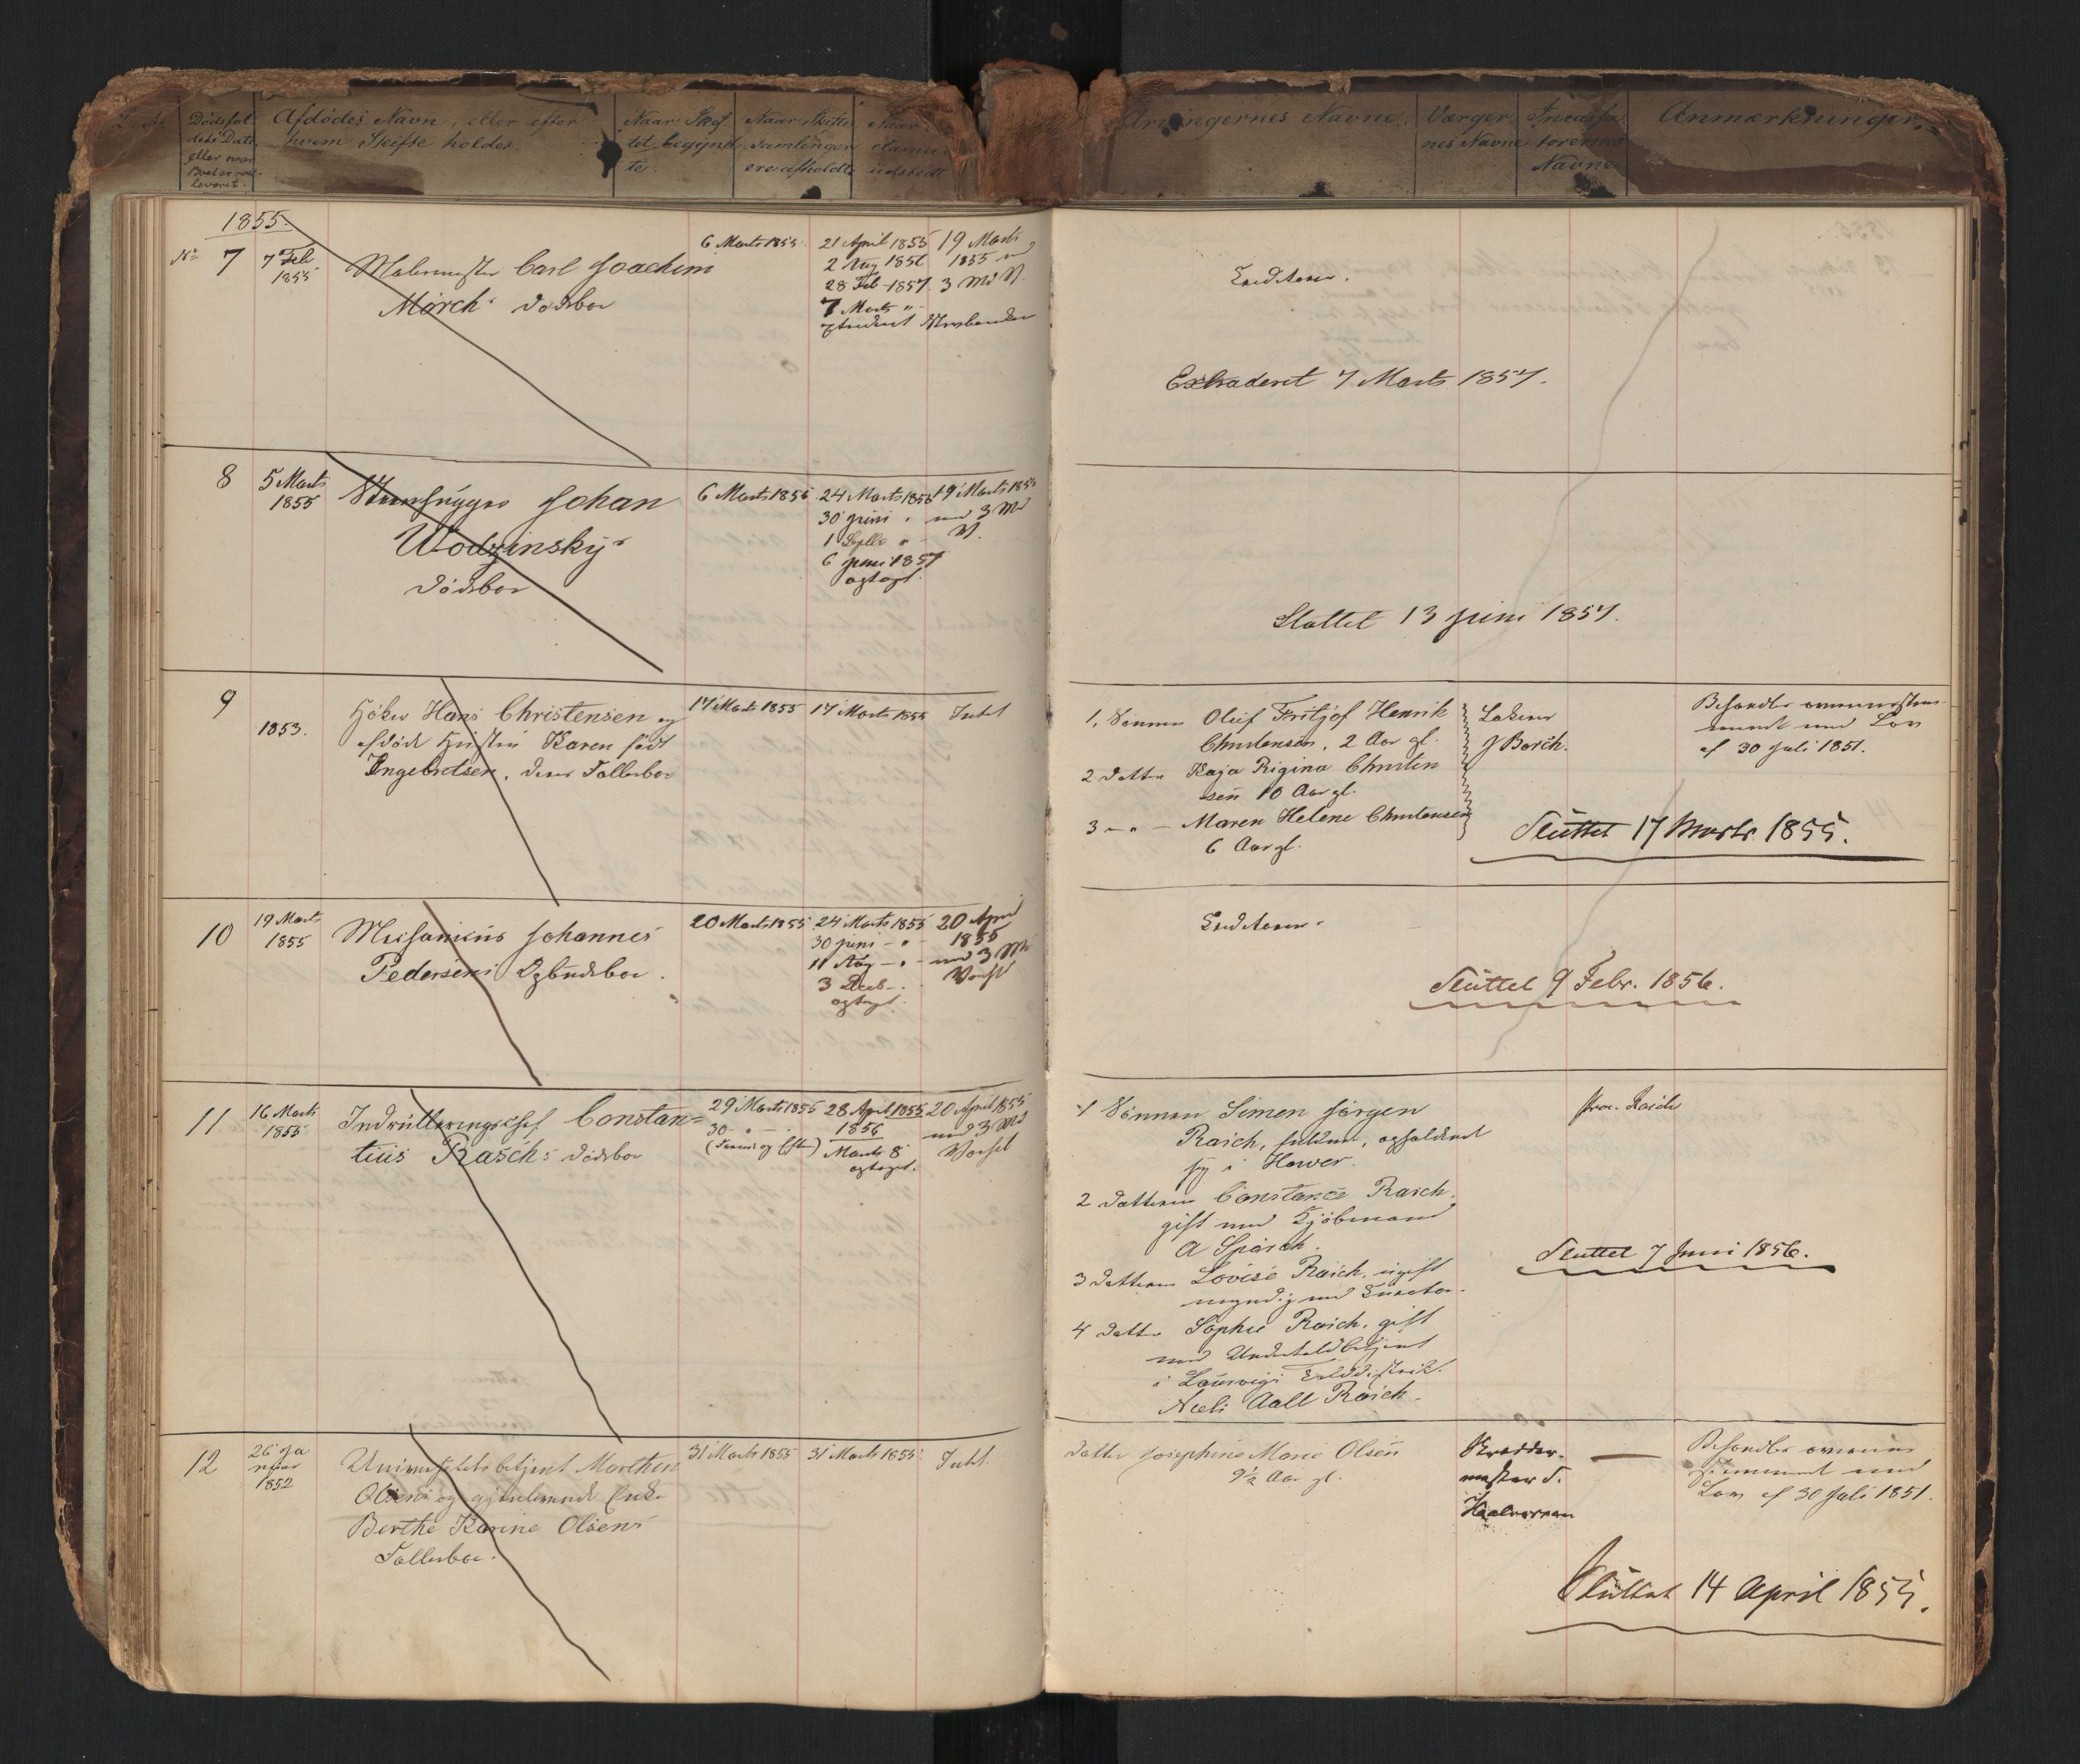 Dødsfal
dets Dato
eller naar
Boet er over
leveret.
Afdødes Navn, eller efter
hvem Skifte holdes.
Naar Skif
tet begynd
te.
Naar Skifte
samlinger
ere afholdte
Naar
udstedt
Arvingernes Navne.
Værger
nes Navne
Incassa
torernes
Navne
Anmærkninger.
1855.
No 7
7 Feb
1855
Malermester Carl Joachim
Mørchs Dødsbo
6 Marts 1855
21 April 1855
2 Aug 1856
28 Feb 1857
7 Marts "
19 Marts
1855 md
3 Md V.
Creditorer.
Extraderet 7 Marts 1857.
8
5 Marts
1855
Steenhugger Johan
Wodzinsky's
Dødsbo
6 Marts 1855
24 Marts 1855
30 Juni "
1 "
6 Juni 1857
optaget.
19 Marts 1855
med 3 Md
V.
Sluttet 13 Juni 1857.
9
1853.
Høker Hans Christensen og
afdøde Hustru Karen født
Ingebretsen, deres Fællesbo
17 Marts 1855
17 Marts 1855
Intet
1, Sønnen Oluf Fritjof Henrik
Christensen, 2 Aar gl.
2 Datter Kaja Rigina Christen
sen 10 Aar gl.
3 - " - Maren Helene Christensen
6 Aar gl.
J Borch.
af 30 Juli 1851.
Sluttet 17 Marts 1855.
10
19 Marts
1855
Mechanicus Johannes
Pedersens Opbudsbo.
20 Marts 1855
24 Marts 1855
30 Juni - " -
11 Aug - " -
3 Decb -.
optaget.
20 April
1855
med 3 Md
Varsel
Creditorer.
Sluttet 9 Febr. 1856.
11
16 Marts
1855
Indrulleringschef Constan=
tius Rasch's Dødsbo
29 Marts 1855
30 - " -
28 April 1855
1856
Marts 8
optaget.
20 April 1855
med 3 Md
Varsel
1 Sønnen Simen Jørgen
Rasch, fuldm., opholdende
sig i Hawer.
2 Datteren Constance Rasch,
gift med Kjøbmand
A Spärck.
3 Datteren Lovise Rasch, ugift
myndig med Curator.
4 Datter Sophie Rasch, gift
med Undertoldbetjent
i Laurvigs Tolddistrikt
Niels Aall Rasch.
Proc. Rasch
Sluttet 7 Juni 1856.
12
26 Ja
nuar
1852
Universitetsbetjent Marthin
Olsens og gjenlevende Enke
Berthe Karine Olsens
Fællesbo.
31 Marts 1855
31 Marts 1855
Intet
Datter Josephine Marie Olsen
9½ Aar gl.
Skrædder-
mester T.
Halvorsen
Lov af 30 Juli 1851.
Sluttet 14 April 1855.